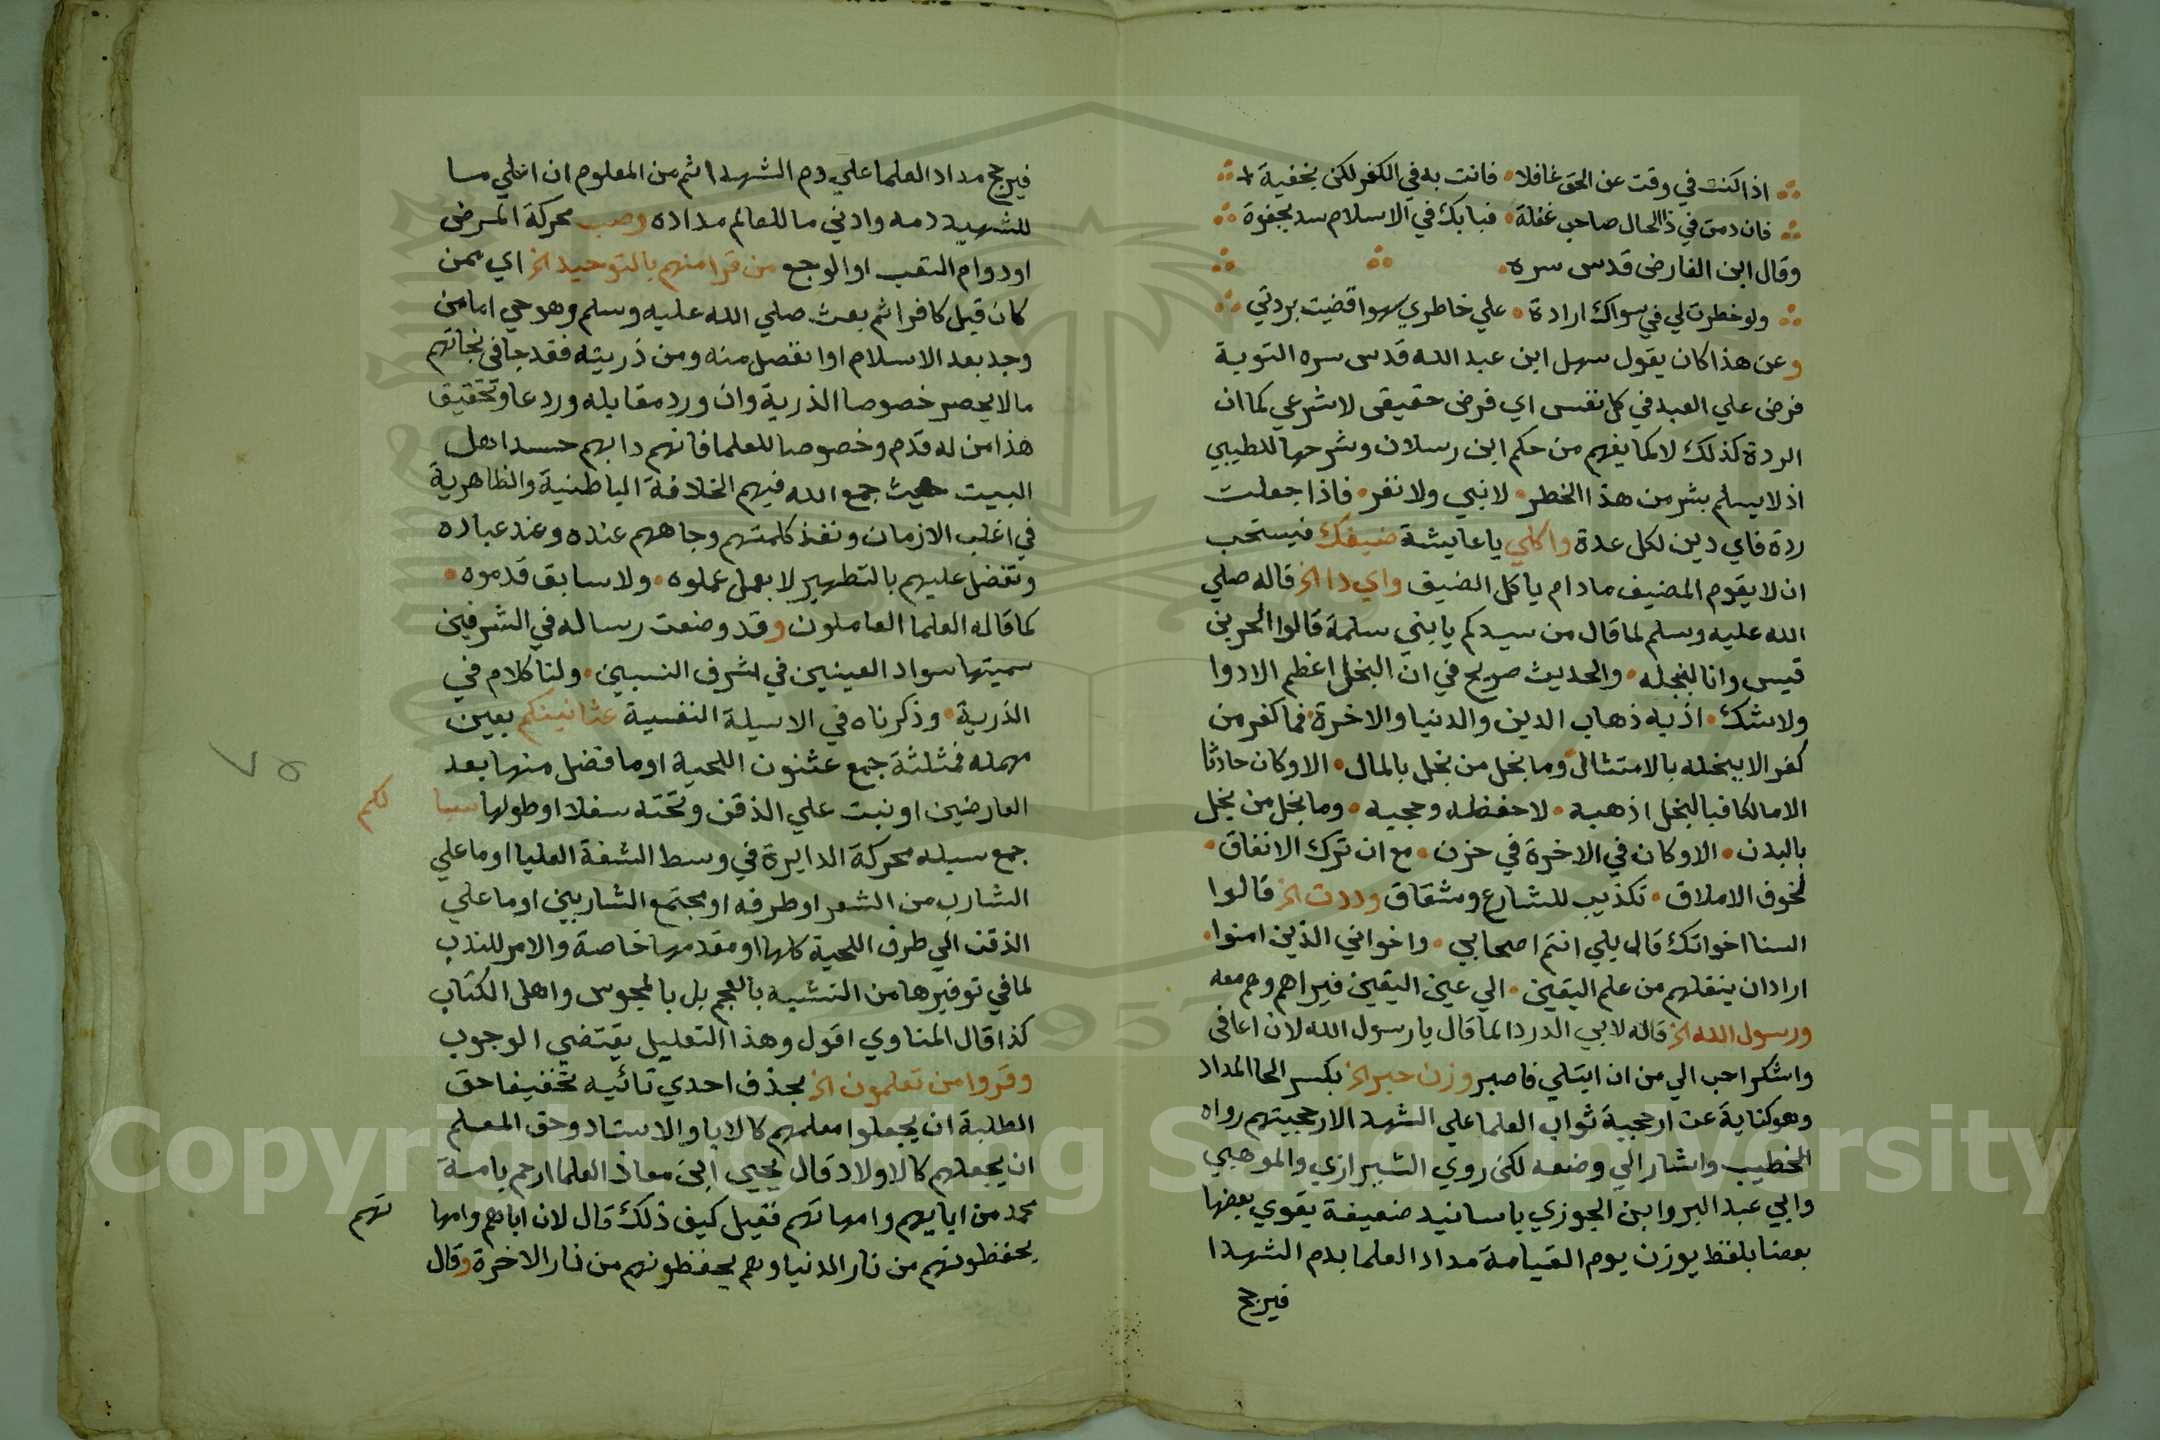 اذا كنت في وقت عن الحق غافلا فانت به في الكفر لكن بخفية
فان دمت في ذا الحال صاحب غفلة فبابك في الاسلام سد بجفوة
وقال ابن الفارض قدس سره
ولو خطرت لي في سواك ارادة علي خاطري سهوا قضيت بردتي
وعن هذا كان يقول سهل ابن عبد الله قدس سره التوبة
فرض علي العبد في كل نفس اي فرض حقيقي لا شرعي كما ان
الردة كذلك لا كما يفهم من حكم ابن رسلان وشرحها للطيبي
اذ لا يسلم بشر من هذا الخطر لا نبي ولا نفر فاذا جعلت
ردة فاي دين لكل عدة واكلي يا عايشة ضيفك فيستحب
ان لا يقوم المضيف ما دام ياكل الضيف واي داا الخ قاله صلي
الله عليه وسلم لما قال من سيدكم يا بني سلمة قالوا الحر بن
قيس وانا لنبخله والحديث صريح في ان البخل اعظم الادوا
ولا شك اذ به ذهاب الدين والدنيا والاخرة فما كفر من
كفر الا ببخله بالامتثال وما بخل من بخل بالمال الا وكان حادثا
الامالكا فبالبخل اذهبه لا حفظه وحجبه وما بخل من بخل
بالبدن الا وكان في الاخرة في حزن مع ان ترك الانفاق
لخوف الاملاق تكذيب للشارع ومشقاق ووددت الخ قالوا
السنا اخوانك قال بلي انتم اصحابي واخواني الذين امنوا
اراد ان ينقلهم من علم اليقين الي عين اليقين فيراهم وهم معه
ورسول الله الخ قاله لابي الدردا لما قال يا رسول الله لان اعافى
واشكر احب الي من ان ابتلي فاصبر وزن حبر الخ بكسر الحا المداد
وهو كناية عن ارجحية ثواب العلما علي الشهدا لارجحيتهم رواه
الخطيب واشار الي وضعه لكن روي الشيرازي والموهبي
وابي عبد البر وابن الجوزي باسانيد ضعيفة يقوي بعضها
بعضا بلفظ يوزن يوم القيامة مداد العلما بدم الشهدا
فيرجح
فيرجح مداد العلما علي دم الشهدا ثم من المعلوم ان اعلي مسا
للشهيد دمه وادني ما للعالم مداده وصب محركة المرض
او دوام التعب او الوجع من قرا منهم بالتوحيد الخ اي ممن
كان قبل كافرا ثم بعث صلي الله عليه وسلم وهو حي اما من
وجد بعد الاسلام او انفصل منه ومن ذريته فقد جا في نجاتهم
ما لا يحصر خصوصا الذرية وان ورد مقابله وردعا وتحقيق
هذا من له قدم وخصوصا للعلما فانهم دابهم حسد اهل
البيت حيث جمع الله فيهم الخلافة الباطنية والظاهرية
في اغلب الازمان ونفذ كلمتهم وجاههم عنده وعند عباده
وتفضل عليهم بالتطهير لا بعمل عملوه ولا سابق قدموه
كما قاله العلما العاملون وقد وضعت رساله في الشرفين
سميتها سواد العينين في شرف النسبين ولنا كلام في
الذرية وذكرناه في الاسيلة النفسية عثانينكم بعين
مهمله فمثلثة جمع عثنون اللحية او ما فضل منها بعد
العارضين او نبت علي الذقن وتحته سفلا او طولها سبا لكم
جمع سبله محركة الدايرة في وسط الشفة العليا او ما علي
الشارب من الشعر او طرفه او مجتمع الشاربين او ما علي
الذقن الي طرف اللحية كلها او مقدمها خاصة والامر للندب
لما في توفيرها من التشبه بالعجم بل بالمجوس واهل الكتاب
كذا قال المناوي اقول وهذا التعليل يقتضي الوجوب
وقروا من تعلمون الخ بحذف احدي تائيه تخفيفا حق
الطلبة ان يجعلوا معلمهم كالابا والاستاد وحق المعلم
ان يجعلهم كالاولاد قال يحيي ابن معاذ العلما ارحم بامة
محمد من ابايهم وامهاتهم فقيل كيف ذلك قال لان اباهم وامها تهم
يحفظونهم من نار الدنيا وهم يحفظونهم من نار الاخرة وقال
٧٥
Copyright © King Saud University
1957